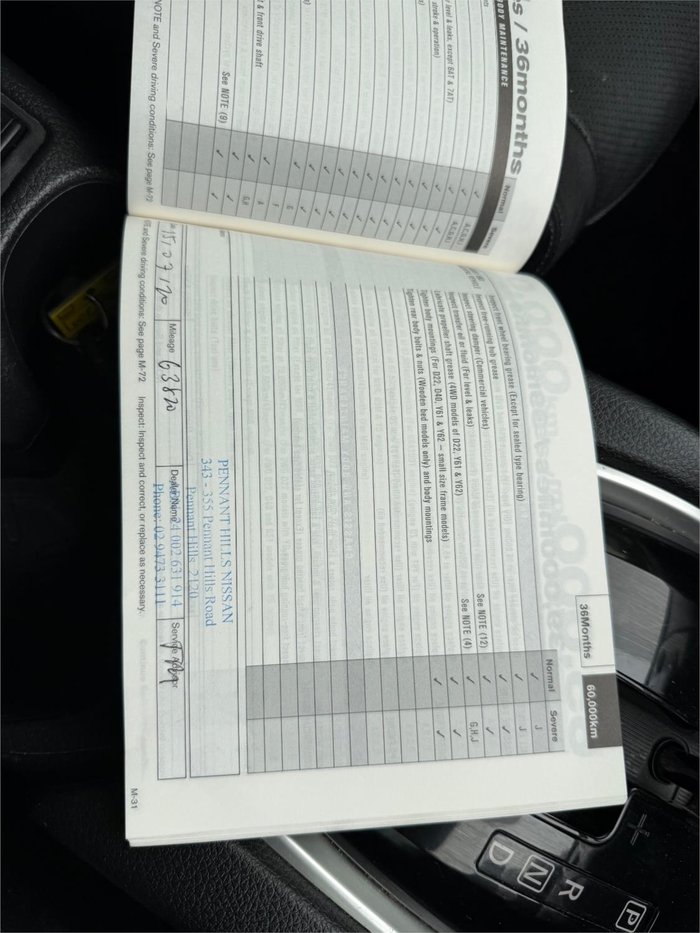 s / 36months
BODY MAINTENANCE
Normal
Severe
level & leaks, except 6AT & 7AT)
stroke & operation)
t & front drive shaft
See NOTE (9)
NOTE and Severe driving conditions: See page M-72
36Months
60,000km
Normal
Severe
Inspect front wheel bearing grease (Except for sealed type bearing)
Inspect free-running hub grease
Inspect steering damper (Commercial vehicles)
See NOTE (12)
Inspect transfer oil or fluid (For level & leaks)
See NOTE (4)
G,H,J
Lubricate propeller shaft grease (4WD models of D22, Y61 & Y62)
Tighten body mountings (For D22, D40, Y61 & Y62 – small size frame models)
Tighten rear body bolts & nuts (Wooden bed models only) and body mountings
PENNANT HILLS NISSAN
343 - 355 Pennant Hills Road
Pennant Hills 2120
24 002 631 914
Phone: 02 9473 3111
15/07/20
Mileage
63820
Dealer Name
Service Advisor
and Severe driving conditions: See page M-72 Inspect: Inspect and correct, or replace as necessary.
M-31
P
R
N
D
+